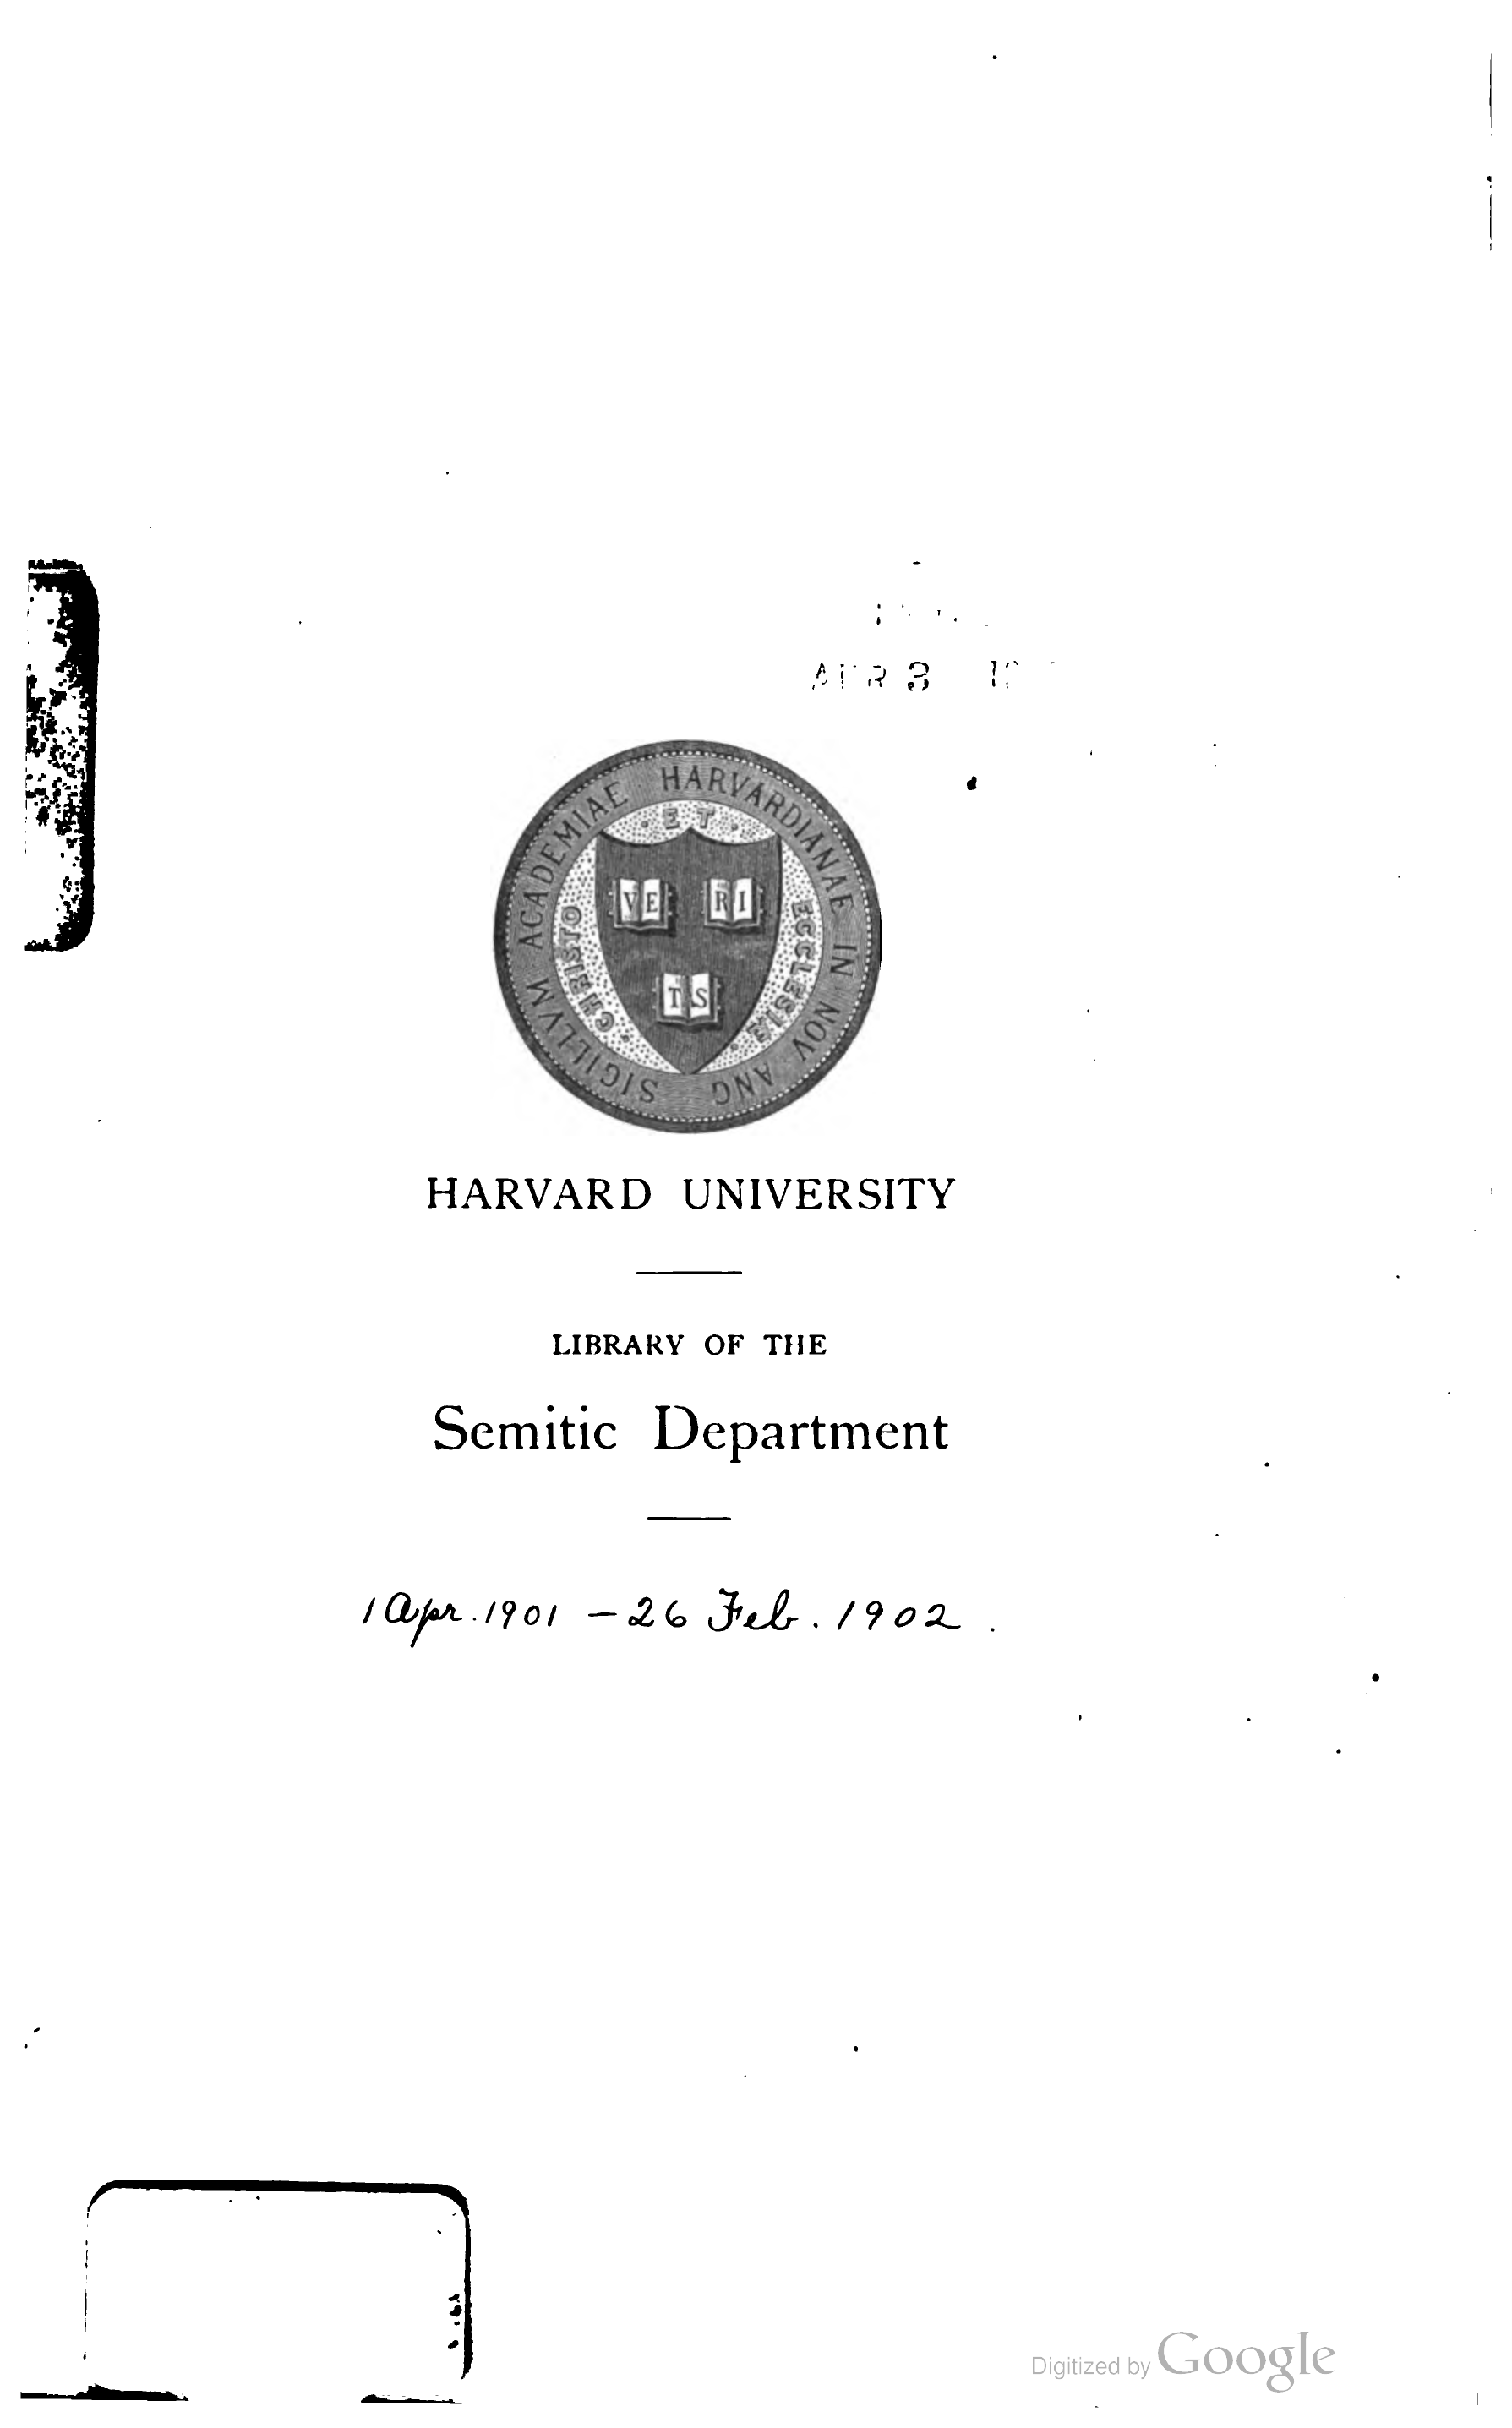 APR 3
SIGILLVM ACADEMIAE HARVARDIANAE IN NOV ANG
CHRISTO ET ECCLESIÆ
VE RI
TAS
HARVARD UNIVERSITY
LIBRARY OF THE
Semitic Department
1 Apr. 1901 – 26 Feb. 1902.
Digitized by Google